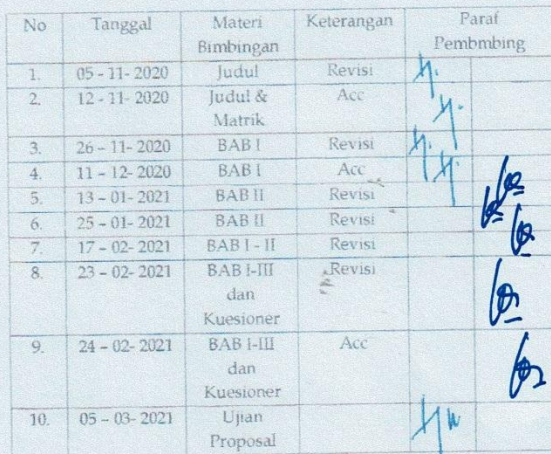 No Tanggal Materi Bimbingan Keterangan Paraf Pembmbing
1. 05 - 11- 2020 Judul Revisi
2. 12 - 11- 2020 Judul & Matrik Acc
3. 26 - 11- 2020 BAB I Revisi
4. 11 - 12- 2020 BAB I Acc
5. 13 - 01- 2021 BAB II Revisi
6. 25 - 01- 2021 BAB II Revisi
7. 17 - 02- 2021 BAB I - II Revisi
8. 23 - 02- 2021 BAB I-III dan Kuesioner Revisi
9. 24 - 02- 2021 BAB I-III dan Kuesioner Acc
10. 05 - 03- 2021 Ujian Proposal